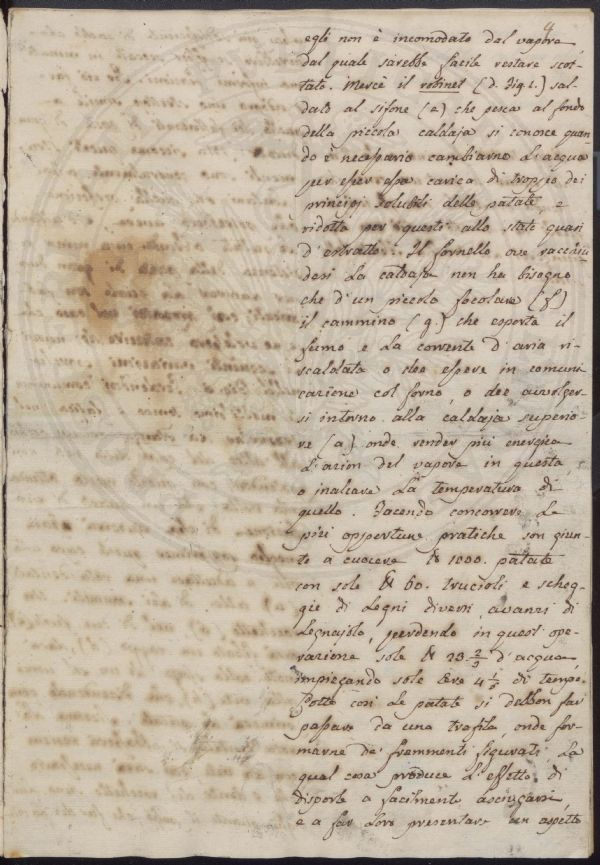 4
egli non è incomodato dal vapore,
dal quale sarebbe facile restare scot-
tato. Mercè il robinet (d. Fig. 1.) sal-
dato al sifone (e) che pesca al fondo
della piccola caldaja si conosce quan-
do è necessario cambiarne l'acqua
per esser essa carica di troppo dei
principj solubili delle patate, e
ridotta per questi allo stato quasi
d'estratto. Il fornello ove racchiu-
desi la caldaja non ha bisogno
che d'un piccolo focolare (f)
il cammino (g.) che esporta il
fumo e la corrente d'aria ri-
scaldata o dee essere in comuni-
cazione col forno, o dee avvolger-
si intorno alla caldaja superio-
re (a) onde render più energica
l'azion del vapore in questa,
o inalzare la temperatura di
quello. Facendo concorrere le
più opportune pratiche son giun-
to a cuocere ℔ 1000. patate
con sole ℔ 60. trucioli e scheg-
gie di legni diversi, avanzi di
legnajolo, perdendo in quest'ope-
razione sole ℔ 23. 2/3 d'acqua,
impiegando sole ore 4 1/2 di tempo.
Cotte con le patate si debbon far
passare da una trafila, onde for-
marne de' frammenti figurati. La
qual cosa produce l'effetto di
disporle a facilmente asciugarsi,
e a far loro presentare un aspetto